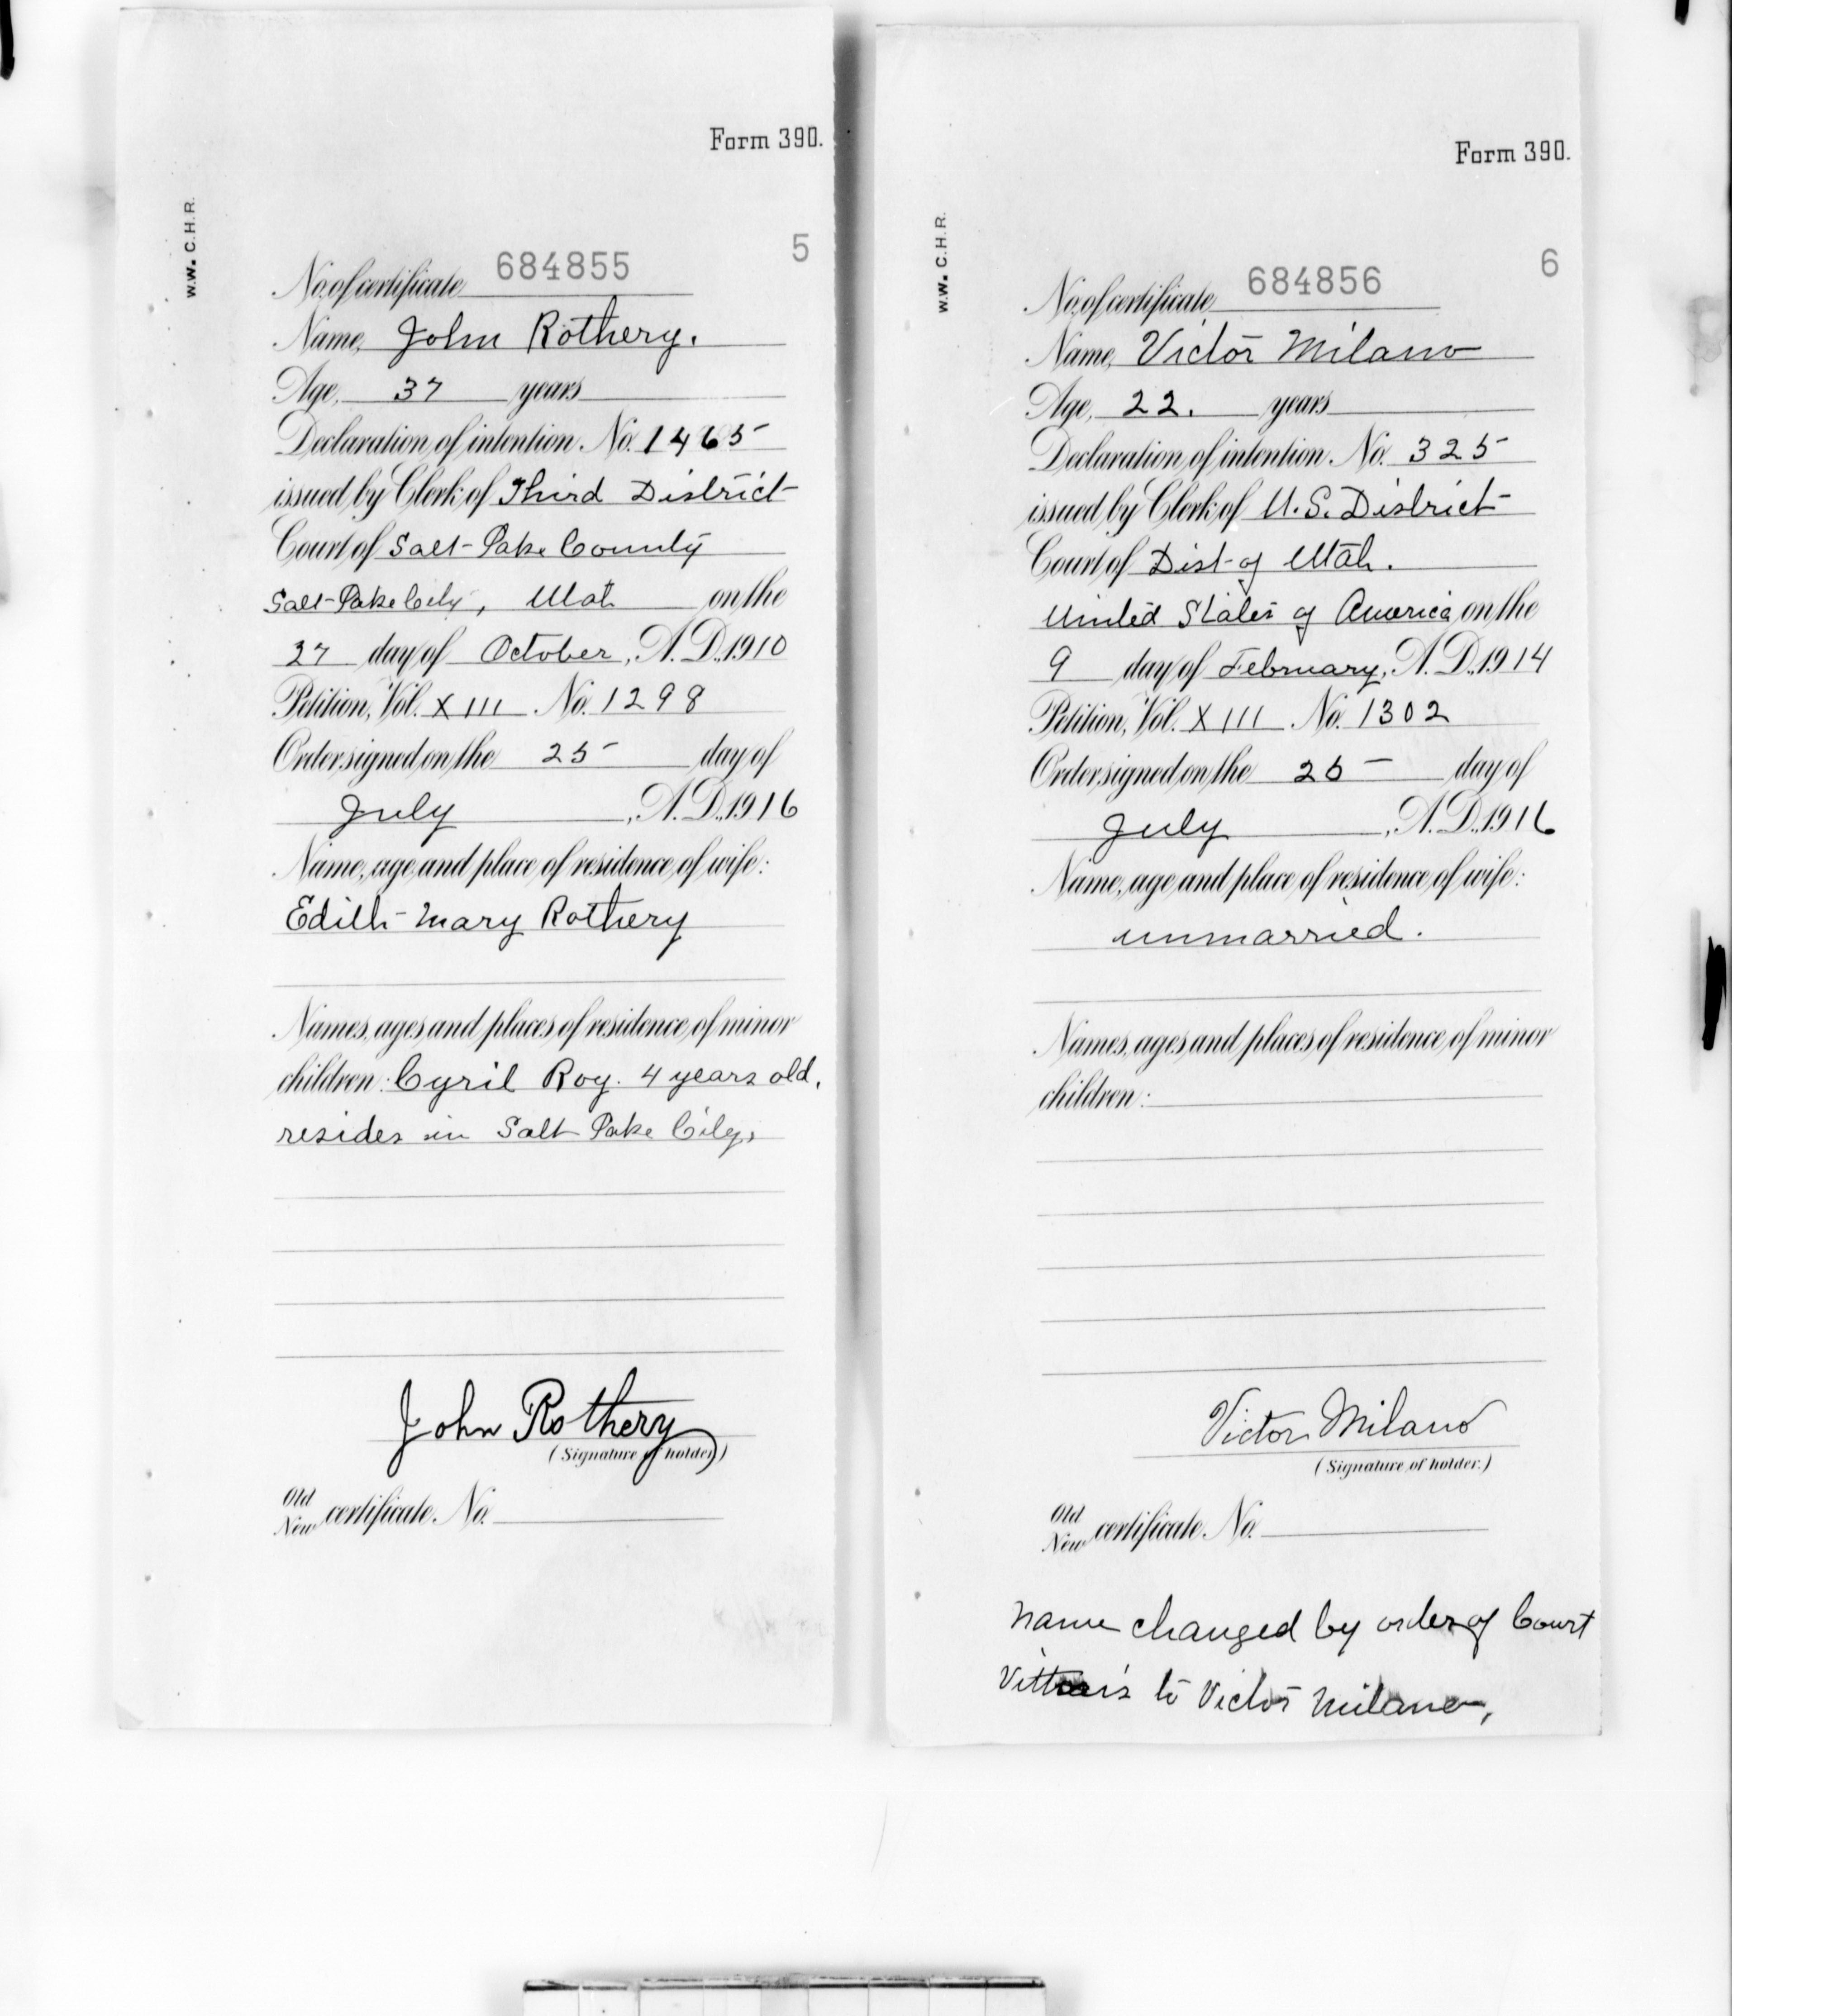 Form 390.
W.W. C.H.R.
5
No. of certificate 684855
Name, John Rothery.
Age, 37 years
Declaration of intention No. 1465
issued by Clerk of Third District
Court of Salt Lake County
Salt Lake City, Utah on the
27 day of October, A.D. 1910
Petition, Vol. XIII No. 1298
Order signed on the 25 day of
July, A.D. 1916
Name, age and place of residence of wife:
Edith Mary Rothery
Names, ages and places of residence of minor
children: Cyril Roy. 4 years old,
resides in Salt Lake City,
John Rothery
(Signature of holder)
Old
New certificate No.
Form 390.
W.W. C.H.R.
6
No. of certificate 684856
Name, Victor Milano
Age, 22. years
Declaration of intention No. 325
issued by Clerk of U.S. District
Court of Dist of Utah.
United States of America on the
9 day of February, A.D. 1914
Petition, Vol. XIII No. 1302
Order signed on the 25 day of
July, A.D. 1916
Name, age and place of residence of wife:
unmarried.
Names, ages and places of residence of minor
children:
Victor Milano
(Signature of holder.)
Old
New certificate No.
Name changed by order of Court
to Victor Milano,